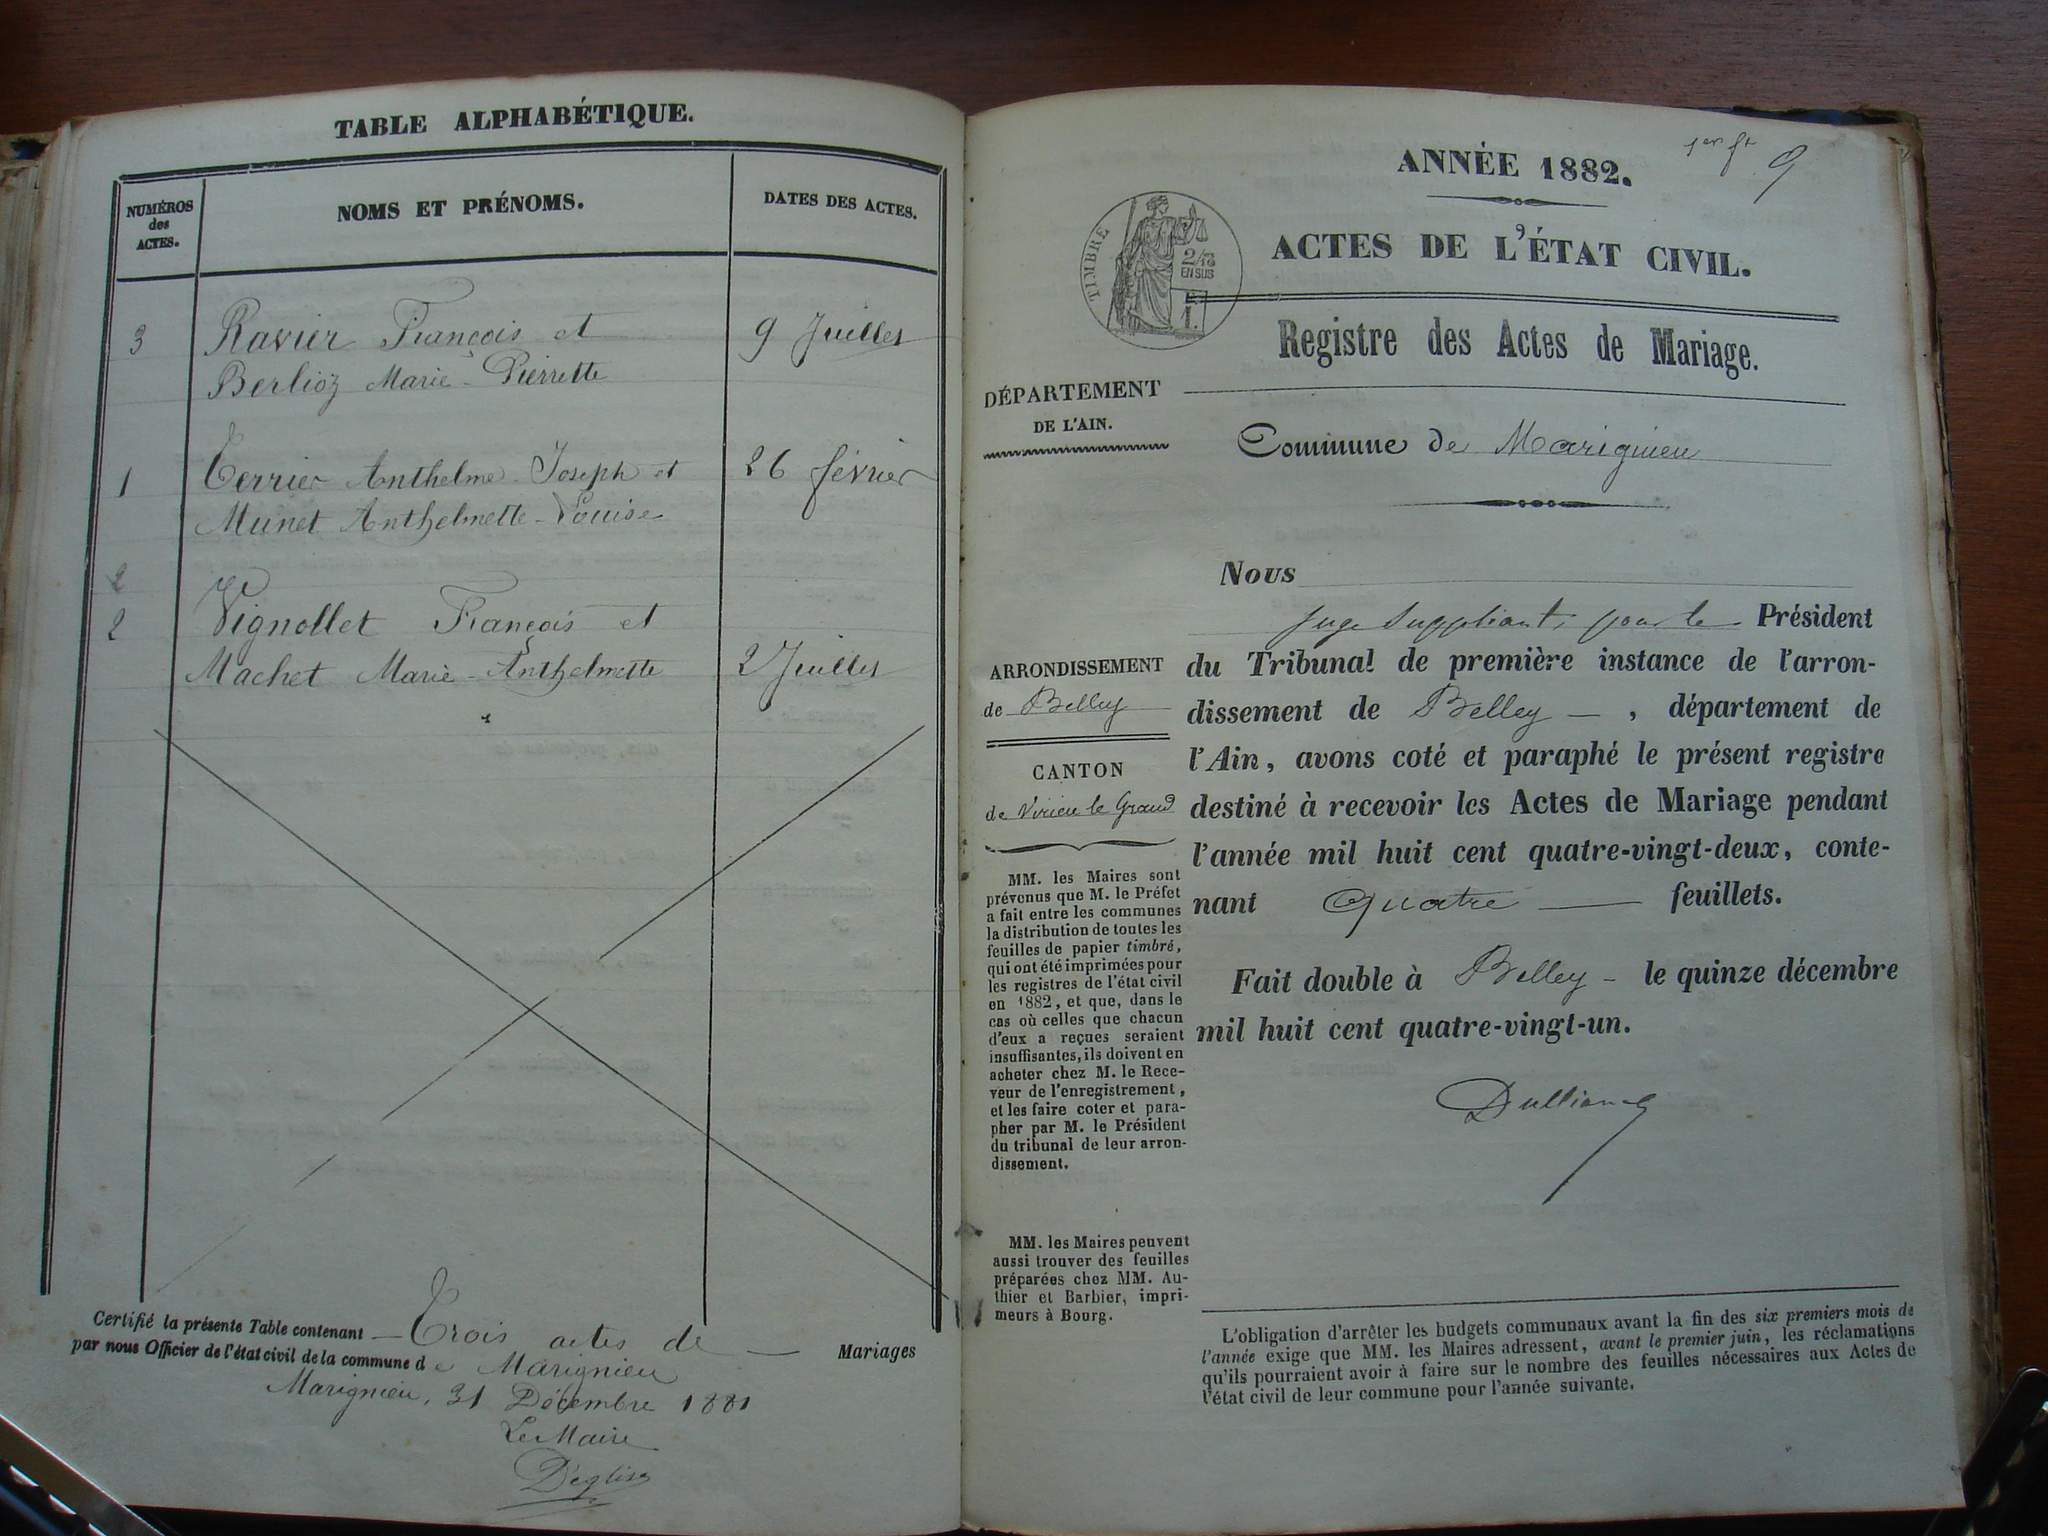 TABLE ALPHABÉTIQUE.
NUMÉROS
des
ACTES.
NOMS ET PRÉNOMS.
DATES DES ACTES.
3 Ravier François et 9 Juillet
Berlioz Marie-Pierrette
1 Terrier Anthelme-Joseph et 26 février
Munet Anthelmette-Louise
2
2 Vignollet François et
Machet Marie-Anthelmette 2 Juillet
Certifié la présente Table contenant — Trois actes de — Mariages
par nous Officier de l'état civil de la commune de Marignieu
Marignieu, 31 Décembre 1881
Le Maire
1er ft 9
ANNÉE 1882.
ACTES DE L'ÉTAT CIVIL.
TIMBRE
2/10
EN SUS
1F.
Registre des Actes de Mariage.
DÉPARTEMENT
DE L'AIN.
Commune de Marignieu
ARRONDISSEMENT
de Belley
CANTON
de Virieu le Grand
MM. les Maires sont
prévenus que M. le Préfet
a fait entre les communes
la distribution de toutes les
feuilles de papier timbré,
qui ont été imprimées pour
les registres de l'état civil
en 1882, et que, dans le
cas où celles que chacun
d'eux a reçues seraient
insuffisantes, ils doivent en
acheter chez M. le Rece-
veur de l'enregistrement,
et les faire coter et para-
pher par M. le Président
du tribunal de leur arron-
dissement.
MM. les Maires peuvent
aussi trouver des feuilles
préparées chez MM. Au-
thier et Barbier, impri-
meurs à Bourg.
Nous
Juge Suppléant, pour le Président
du Tribunal de première instance de l'arron-
dissement de Belley — , département de
l'Ain, avons coté et paraphé le présent registre
destiné à recevoir les Actes de Mariage pendant
l'année mil huit cent quatre-vingt-deux, conte-
nant Quatre — feuillets.
Fait double à Belley - le quinze décembre
mil huit cent quatre-vingt-un.
L'obligation d'arrêter les budgets communaux avant la fin des six premiers mois de
l'année exige que MM. les Maires adressent, avant le premier juin, les réclamations
qu'ils pourraient avoir à faire sur le nombre des feuilles nécessaires aux Actes de
l'état civil de leur commune pour l'année suivante.